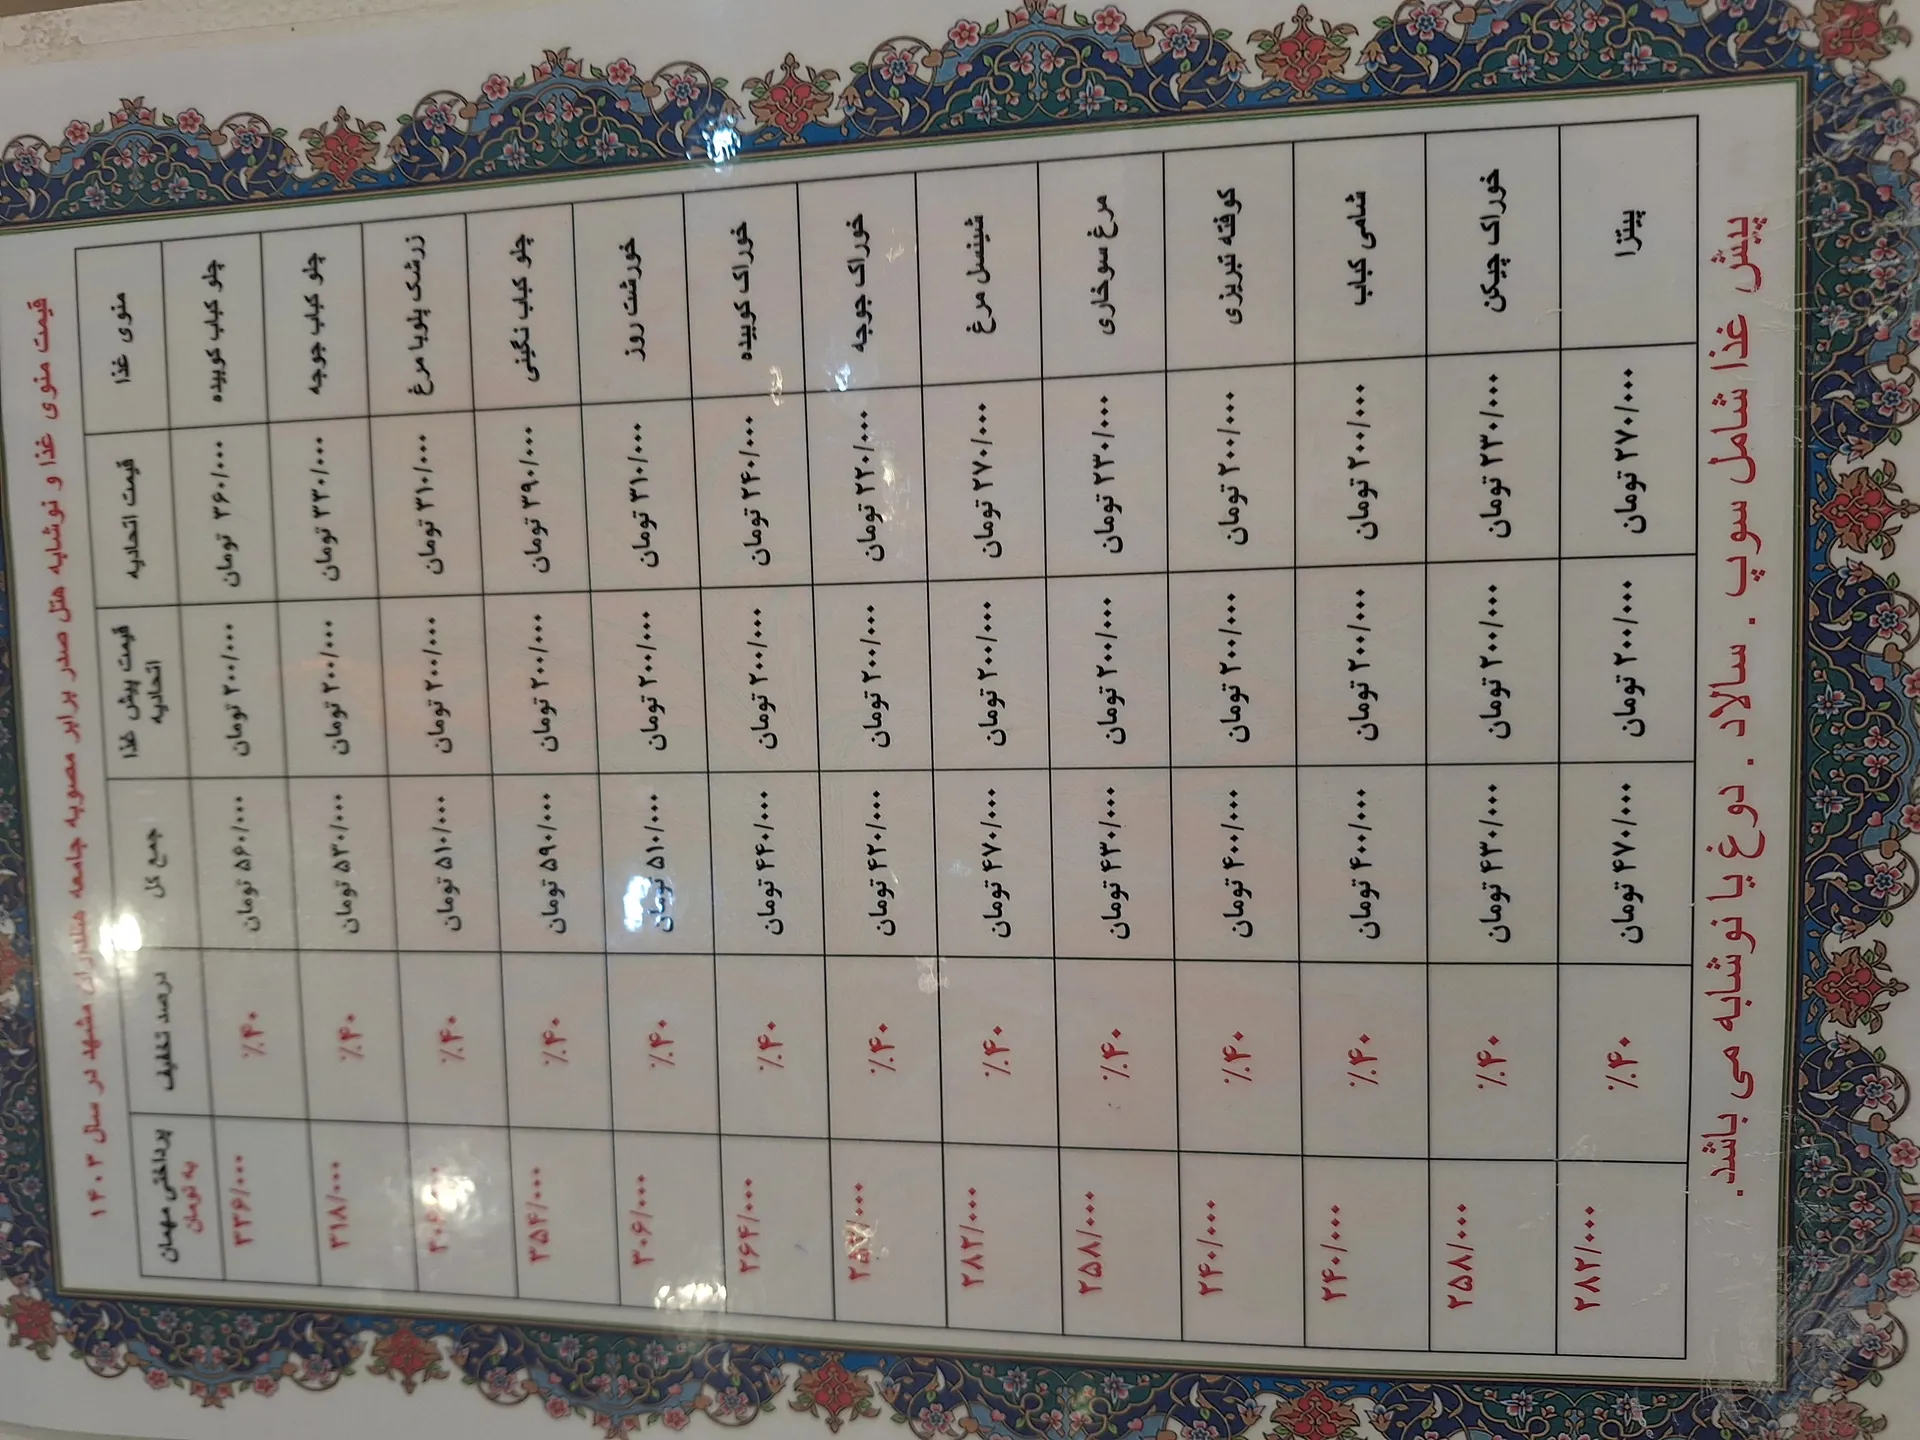 قیمت منوی غذا و نوشابه هتل صدر برابر مصوبه جامعه هتلداران مشهد در سال ۱۴۰۳
منوی غذا قیمت اتحادیه قیمت پیش غذا اتحادیه جمع کل درصد تخفیف پرداختی مهمان به تومان
چلو کباب کوبیده ۳۶۰/۰۰۰ تومان ۲۰۰/۰۰۰ تومان ۵۶۰/۰۰۰ تومان ٪۴۰ ۳۳۶/۰۰۰
چلو کباب جوجه ۳۳۰/۰۰۰ تومان ۲۰۰/۰۰۰ تومان ۵۳۰/۰۰۰ تومان ٪۴۰ ۳۱۸/۰۰۰
زرشک پلوبا مرغ ۳۱۰/۰۰۰ تومان ۲۰۰/۰۰۰ تومان ۵۱۰/۰۰۰ تومان ٪۴۰
چلو کباب نگینی ۳۹۰/۰۰۰ تومان ۲۰۰/۰۰۰ تومان ۵۹۰/۰۰۰ تومان ٪۴۰ ۳۵۴/۰۰۰
خورشت روز ۳۱۰/۰۰۰ تومان ۲۰۰/۰۰۰ تومان ۵۱۰/۰۰۰ تومان ٪۴۰ ۳۰۶/۰۰۰
خوراک کوبیده ۲۴۰/۰۰۰ تومان ۲۰۰/۰۰۰ تومان ۴۴۰/۰۰۰ تومان ٪۴۰ ۲۶۴/۰۰۰
خوراک جوجه ۲۲۰/۰۰۰ تومان ۲۰۰/۰۰۰ تومان ۴۲۰/۰۰۰ تومان ٪۴۰ ۲۵۲/۰۰۰
شینسل مرغ ۲۷۰/۰۰۰ تومان ۲۰۰/۰۰۰ تومان ۴۷۰/۰۰۰ تومان ٪۴۰ ۲۸۲/۰۰۰
مرغ سوخاری ۲۳۰/۰۰۰ تومان ۲۰۰/۰۰۰ تومان ۴۳۰/۰۰۰ تومان ٪۴۰ ۲۵۸/۰۰۰
کوفته تبریزی ۲۰۰/۰۰۰ تومان ۲۰۰/۰۰۰ تومان ۴۰۰/۰۰۰ تومان ٪۴۰ ۲۴۰/۰۰۰
شامی کباب ۲۰۰/۰۰۰ تومان ۲۰۰/۰۰۰ تومان ۴۰۰/۰۰۰ تومان ٪۴۰ ۲۴۰/۰۰۰
خوراک چیکن ۲۳۰/۰۰۰ تومان ۲۰۰/۰۰۰ تومان ۴۳۰/۰۰۰ تومان ٪۴۰ ۲۵۸/۰۰۰
پیتزا ۲۷۰/۰۰۰ تومان ۲۰۰/۰۰۰ تومان ۴۷۰/۰۰۰ تومان ٪۴۰ ۲۸۲/۰۰۰
پیش غذا شامل سوپ . سالاد . دوغ یا نوشابه می باشد.